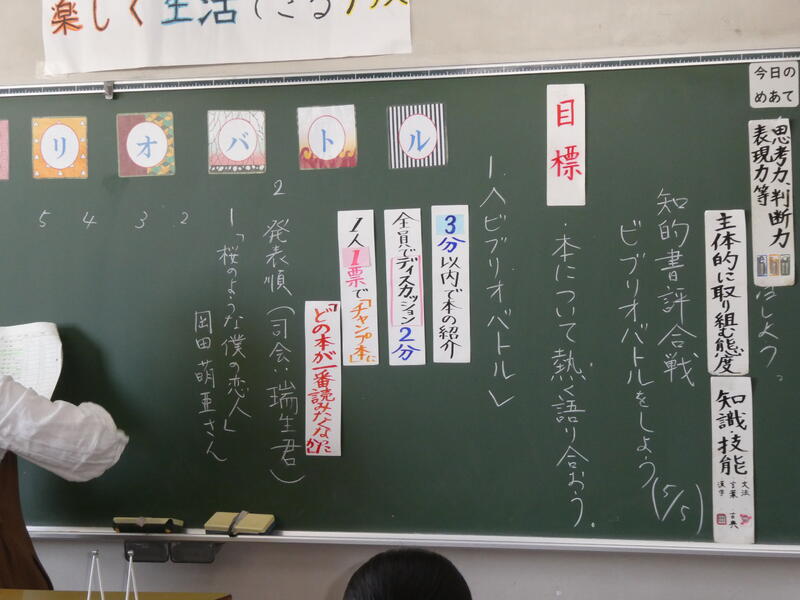 楽しく生活できるクラス
リオバトル
今日の
めあて
思考力、判断力
表現力等
はしよう。
主体的に取り組む態度
知識・技能
文法
言葉 古典
漢字
知的書評合戦
ビブリオバトルをしよう(5/5)
目標
・本について熱く語り合おう。
1.〈ビブリオバトル〉
3分以内で本の紹介
全員でディスカッション2分
1人1票で「チャンプ本」に
「どの本が一番読みたくなったか」に
2 発表順(司会:瑞生君)
1「桜のような僕の恋人」
岡田萌亜さん
2
3
4
5